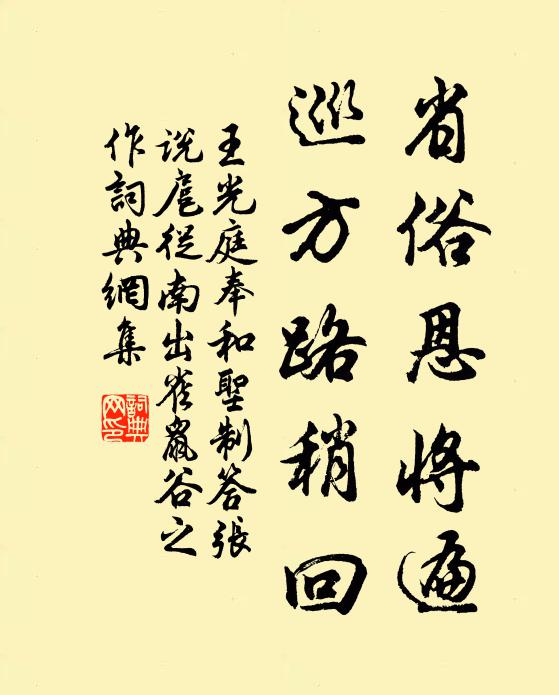 省俗恩将遍
巡方路稍回
王光庭奉和聖制答張
説扈從南出雀鼠谷之
作詞典網集
詞典
网印